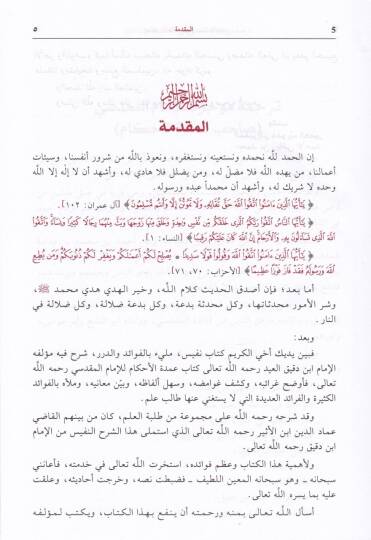 5
المقدمة
٥
بسم الله الرحمن الرحيم
المقدمة
إن الحمد للّه نحمده ونستعينه ونستغفره، ونعوذ باللّه من شرور أنفسنا، وسيئات
أعمالنا، من يهده اللّه فلا مضلّ له، ومن يضلل فلا هادي له، وأشهد أن لا إله إلا اللّه
وحده لا شريك له، وأشهد أن محمداً عبده ورسوله.
﴿ يَٰٓأَيُّهَا ٱلَّذِينَ ءَامَنُوا۟ ٱتَّقُوا۟ ٱللَّهَ حَقَّ تُقَاتِهِۦ وَلَا تَمُوتُنَّ إِلَّا وَأَنتُم مُّسْلِمُونَ ﴾ [آل عمران: ١٠٢].
﴿ يَٰٓأَيُّهَا ٱلنَّاسُ ٱتَّقُوا۟ رَبَّكُمُ ٱلَّذِى خَلَقَكُم مِّن نَّفْسٍ وَٰحِدَةٍ وَخَلَقَ مِنْهَا زَوْجَهَا وَبَثَّ مِنْهُمَا رِجَالًا كَثِيرًا وَنِسَآءً وَٱتَّقُوا۟
ٱللَّهَ ٱلَّذِى تَسَآءَلُونَ بِهِۦ وَٱلْأَرْحَامَ إِنَّ ٱللَّهَ كَانَ عَلَيْكُمْ رَقِيبًا ﴾ [النساء: ١].
﴿ يَٰٓأَيُّهَا ٱلَّذِينَ ءَامَنُوا۟ ٱتَّقُوا۟ ٱللَّهَ وَقُولُوا۟ قَوْلًا سَدِيدًا * يُصْلِحْ لَكُمْ أَعْمَٰلَكُمْ وَيَغْفِرْ لَكُمْ ذُنُوبَكُمْ وَمَن يُطِعِ
ٱللَّهَ وَرَسُولَهُۥ فَقَدْ فَازَ فَوْزًا عَظِيمًا ﴾ [الأحزاب: ٧٠، ٧١].
أما بعد؛ فإن أصدق الحديث كلام اللّه، وخير الهدي هدي محمد ﷺ،
وشر الأمور محدثاتها، وكل محدثة بدعة، وكل بدعة ضلالة، وكل ضلالة في
النار.
وبعد:
فبين يديك أخي الكريم كتاب نفيس، مليء بالفوائد والدرر، شرح فيه مؤلفه
الإمام ابن دقيق العيد رحمه اللّه تعالى كتاب عمدة الأحكام للإمام المقدسي رحمه اللّه
تعالى، فأوضح غرائبه، وكشف غوامضه، وسهل ألفاظه، وبيّن معانيه، وملأه بالفوائد
الكثيرة والفرائد العديدة التي لا يستغني عنها طالب علم.
وقد شرحه رحمه اللّه على مجموعة من طلبة العلم، كان من بينهم القاضي
عماد الدين ابن الأثير رحمه اللّه تعالى الذي استملى هذا الشرح النفيس من الإمام
ابن دقيق رحمه اللّه تعالى.
ولأهمية هذا الكتاب وعظم فوائده، استخرت اللّه تعالى في خدمته، فأعانني
سبحانه ـ وهو سبحانه المعين اللطيف ـ فضبطت نصه، وخرجت أحاديثه، وعلقت
عليه بما يسره اللّه تعالى.
أسأل اللّه تعالى بمنه ورحمته أن ينفع بهذا الكتاب، ويكتب لمؤلفه